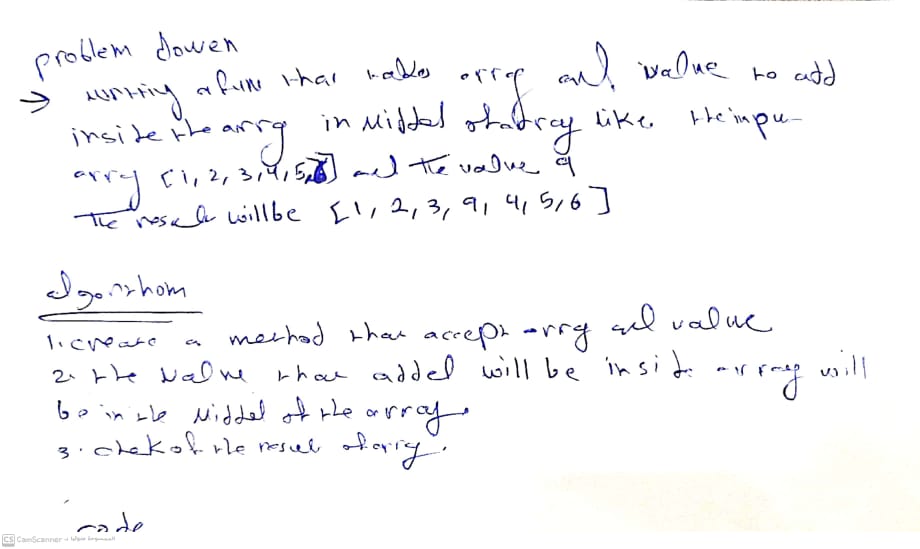 problem dowen
→ writing a func that takes array and value to add
inside the arry in middel of array like. the inpu-
arry [1, 2, 3, 4, 5, 6] and the value 9
The reselt will be [1, 2, 3, 9, 4, 5, 6]
algorithom
1. create a method that accept arry and value
2. the value that added will be insid array will
be in the middel of the array.
3. chek of the resul of arry.
code
CS CamScanner